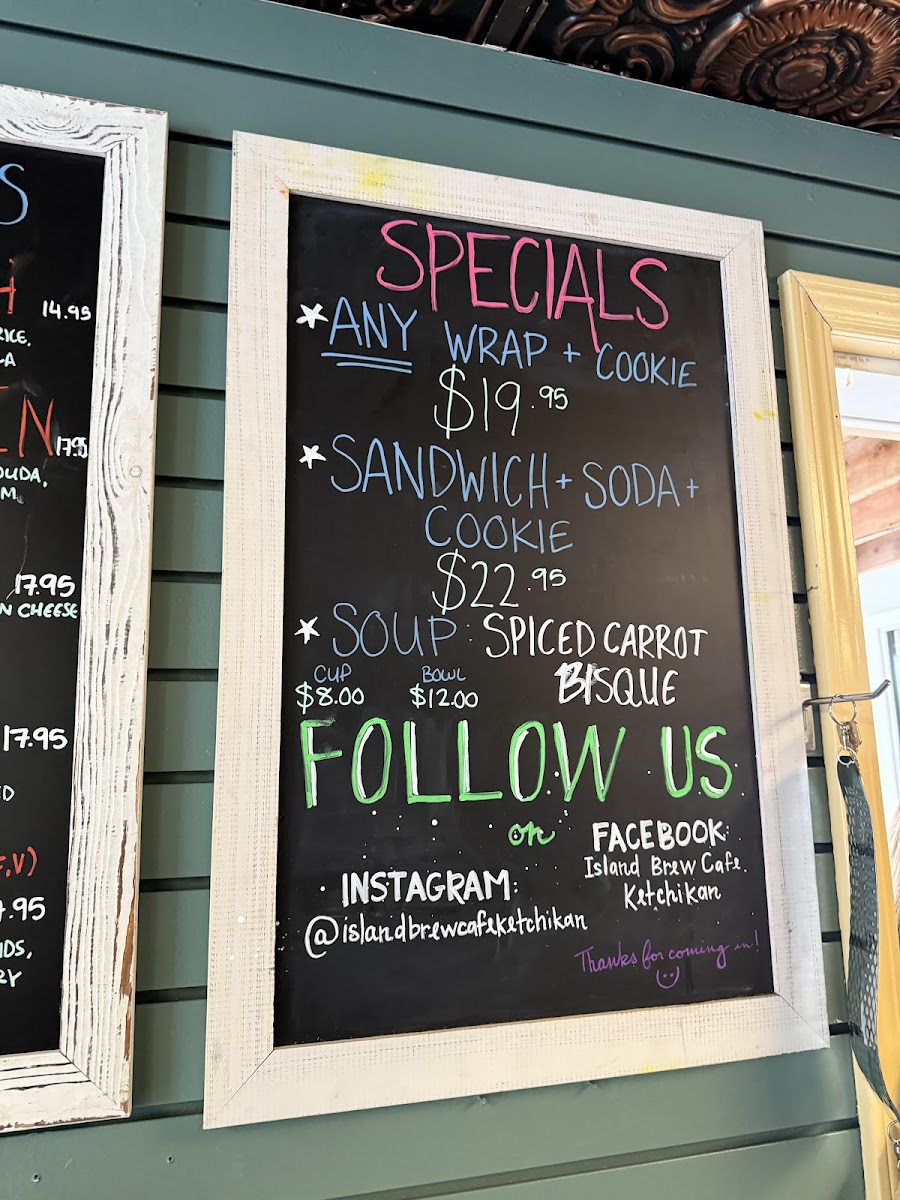 S
H 14.95
RICE,
LA
EN 17.95
OUDA,
M
17.95
N CHEESE
17.95
ED
F,V)
7.95
IDS,
RY
SPECIALS
ANY WRAP + COOKIE
$19.95
SANDWICH + SODA +
COOKIE
$22.95
SOUP: SPICED CARROT
BISQUE
CUP BOWL
$8.00 $12.00
FOLLOW US
on
FACEBOOK:
Island Brew Cafe.
Ketchikan
INSTAGRAM:
@islandbrewcafeketchikan
Thanks for coming in!